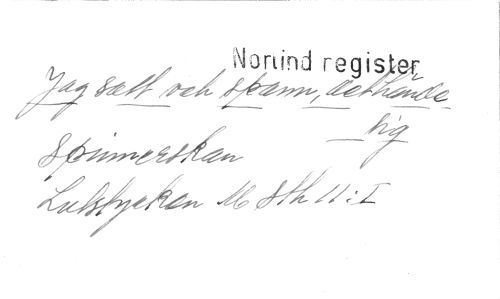 Norlind register
Jag satt och spann, det hände
sig
Spinnerskan
Lutstycken 16 Sth II:I